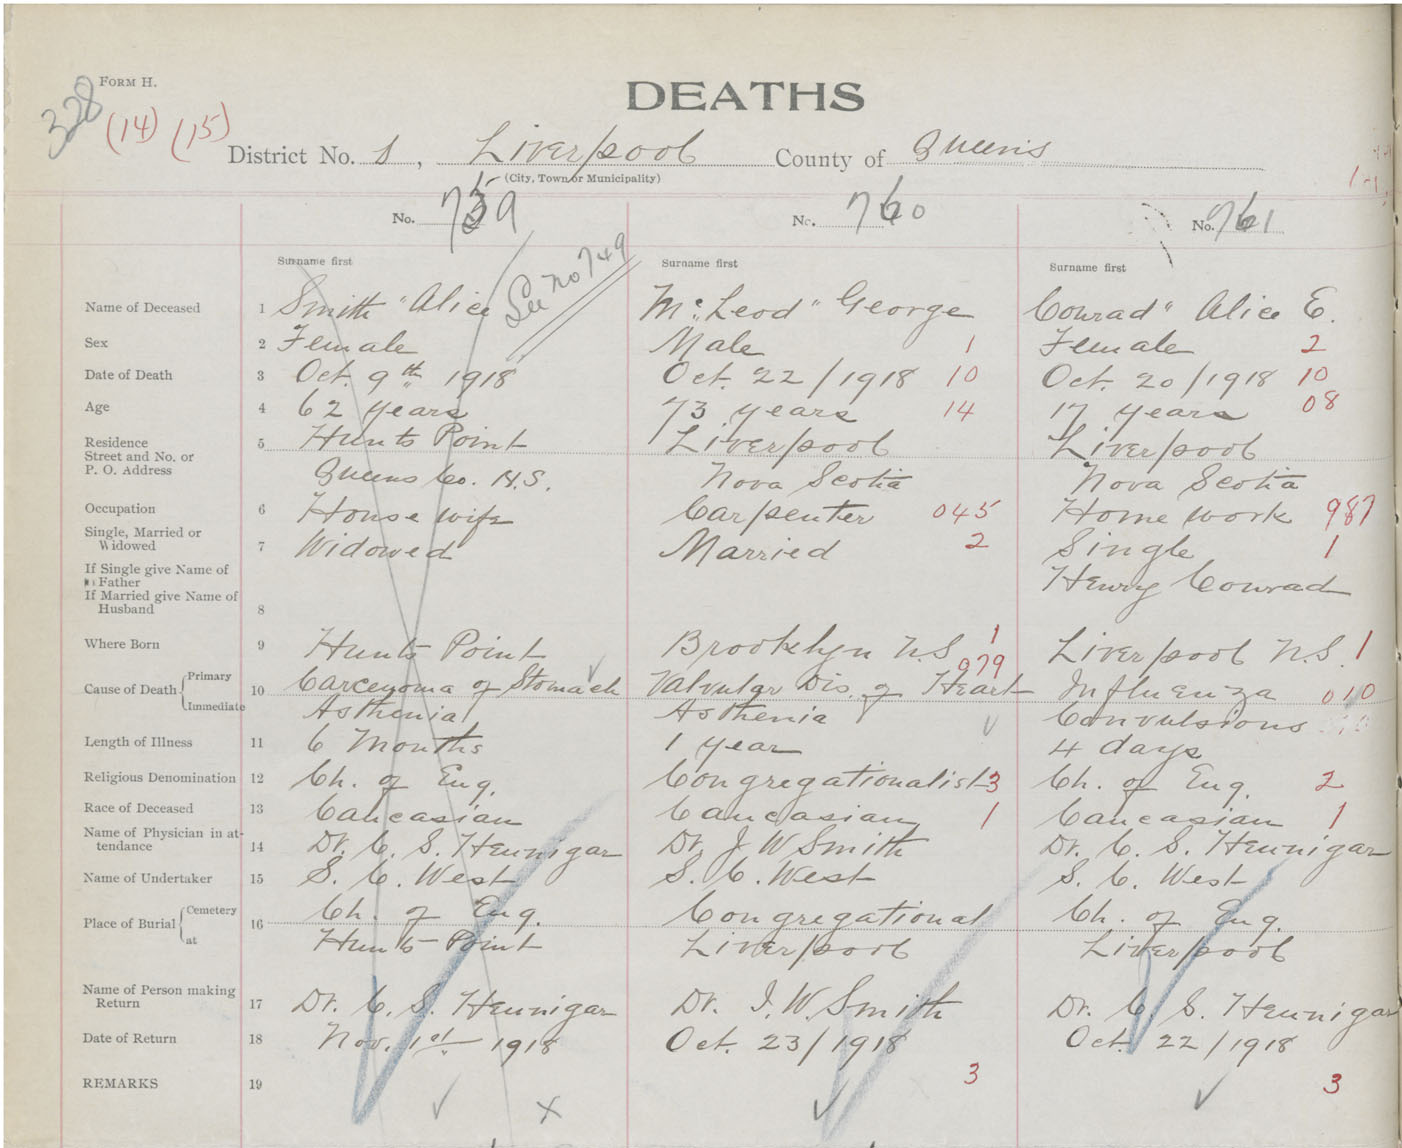 FORM H.
328
(14) (15)
DEATHS
District No. 1, Liverpool County of Queens
(City, Town or Municipality)
No. 759 No. 760 No. 761
Surname first Surname first Surname first
See no 749
Name of Deceased 1 Smith "Alice Mc.Leod" George Conrad" Alice E.
Sex 2 Female Male 1 Female 2
Date of Death 3 Oct. 9th 1918 Oct. 22/1918 10 Oct. 20/1918 10
Age 4 62 years 73 years 14 17 years 08
Residence 5 Hunts Point Liverpool Liverpool
Street and No. or
P. O. Address Queens Co. N.S. Nova Scotia Nova Scotia
Occupation 6 House wife Carpenter 045 Home work 987
Single, Married or
Widowed 7 Widowed Married 2 Single 1
If Single give Name of
Father Henry Conrad
If Married give Name of
Husband 8
Where Born 9 Hunts Point Brooklyn N.S. 1 Liverpool N.S. 1
Cause of Death Primary 10 Carcenoma of Stomach Valvular Dis. of Heart 979 Influenza 010
Immediate Asthenia Asthenia Convulsions
Length of Illness 11 6 Months 1 year 4 days
Religious Denomination 12 Ch. of Eng. Congregationalist 3 Ch. of Eng. 2
Race of Deceased 13 Caucasian Caucasian 1 Caucasian 1
Name of Physician in at-
tendance 14 Dr. C. S. Hennigar Dr. J W Smith Dr. C. S. Hennigar
Name of Undertaker 15 S. C. West S. C. West S. C. West
Place of Burial Cemetery 16 Ch. of Eng. Congregational Ch. of Eng.
at Hunts Point Liverpool Liverpool
Name of Person making
Return 17 Dr. C. S. Hennigar Dr. J. W. Smith Dr. C. S. Hennigar
Date of Return 18 Nov. 1st 1918 Oct. 23/1918 Oct. 22/1918
REMARKS 19 3 3